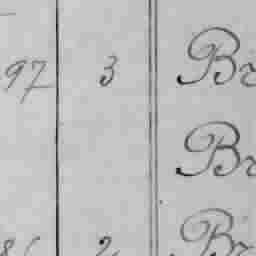 97 3 Br
Br
86 2 Br